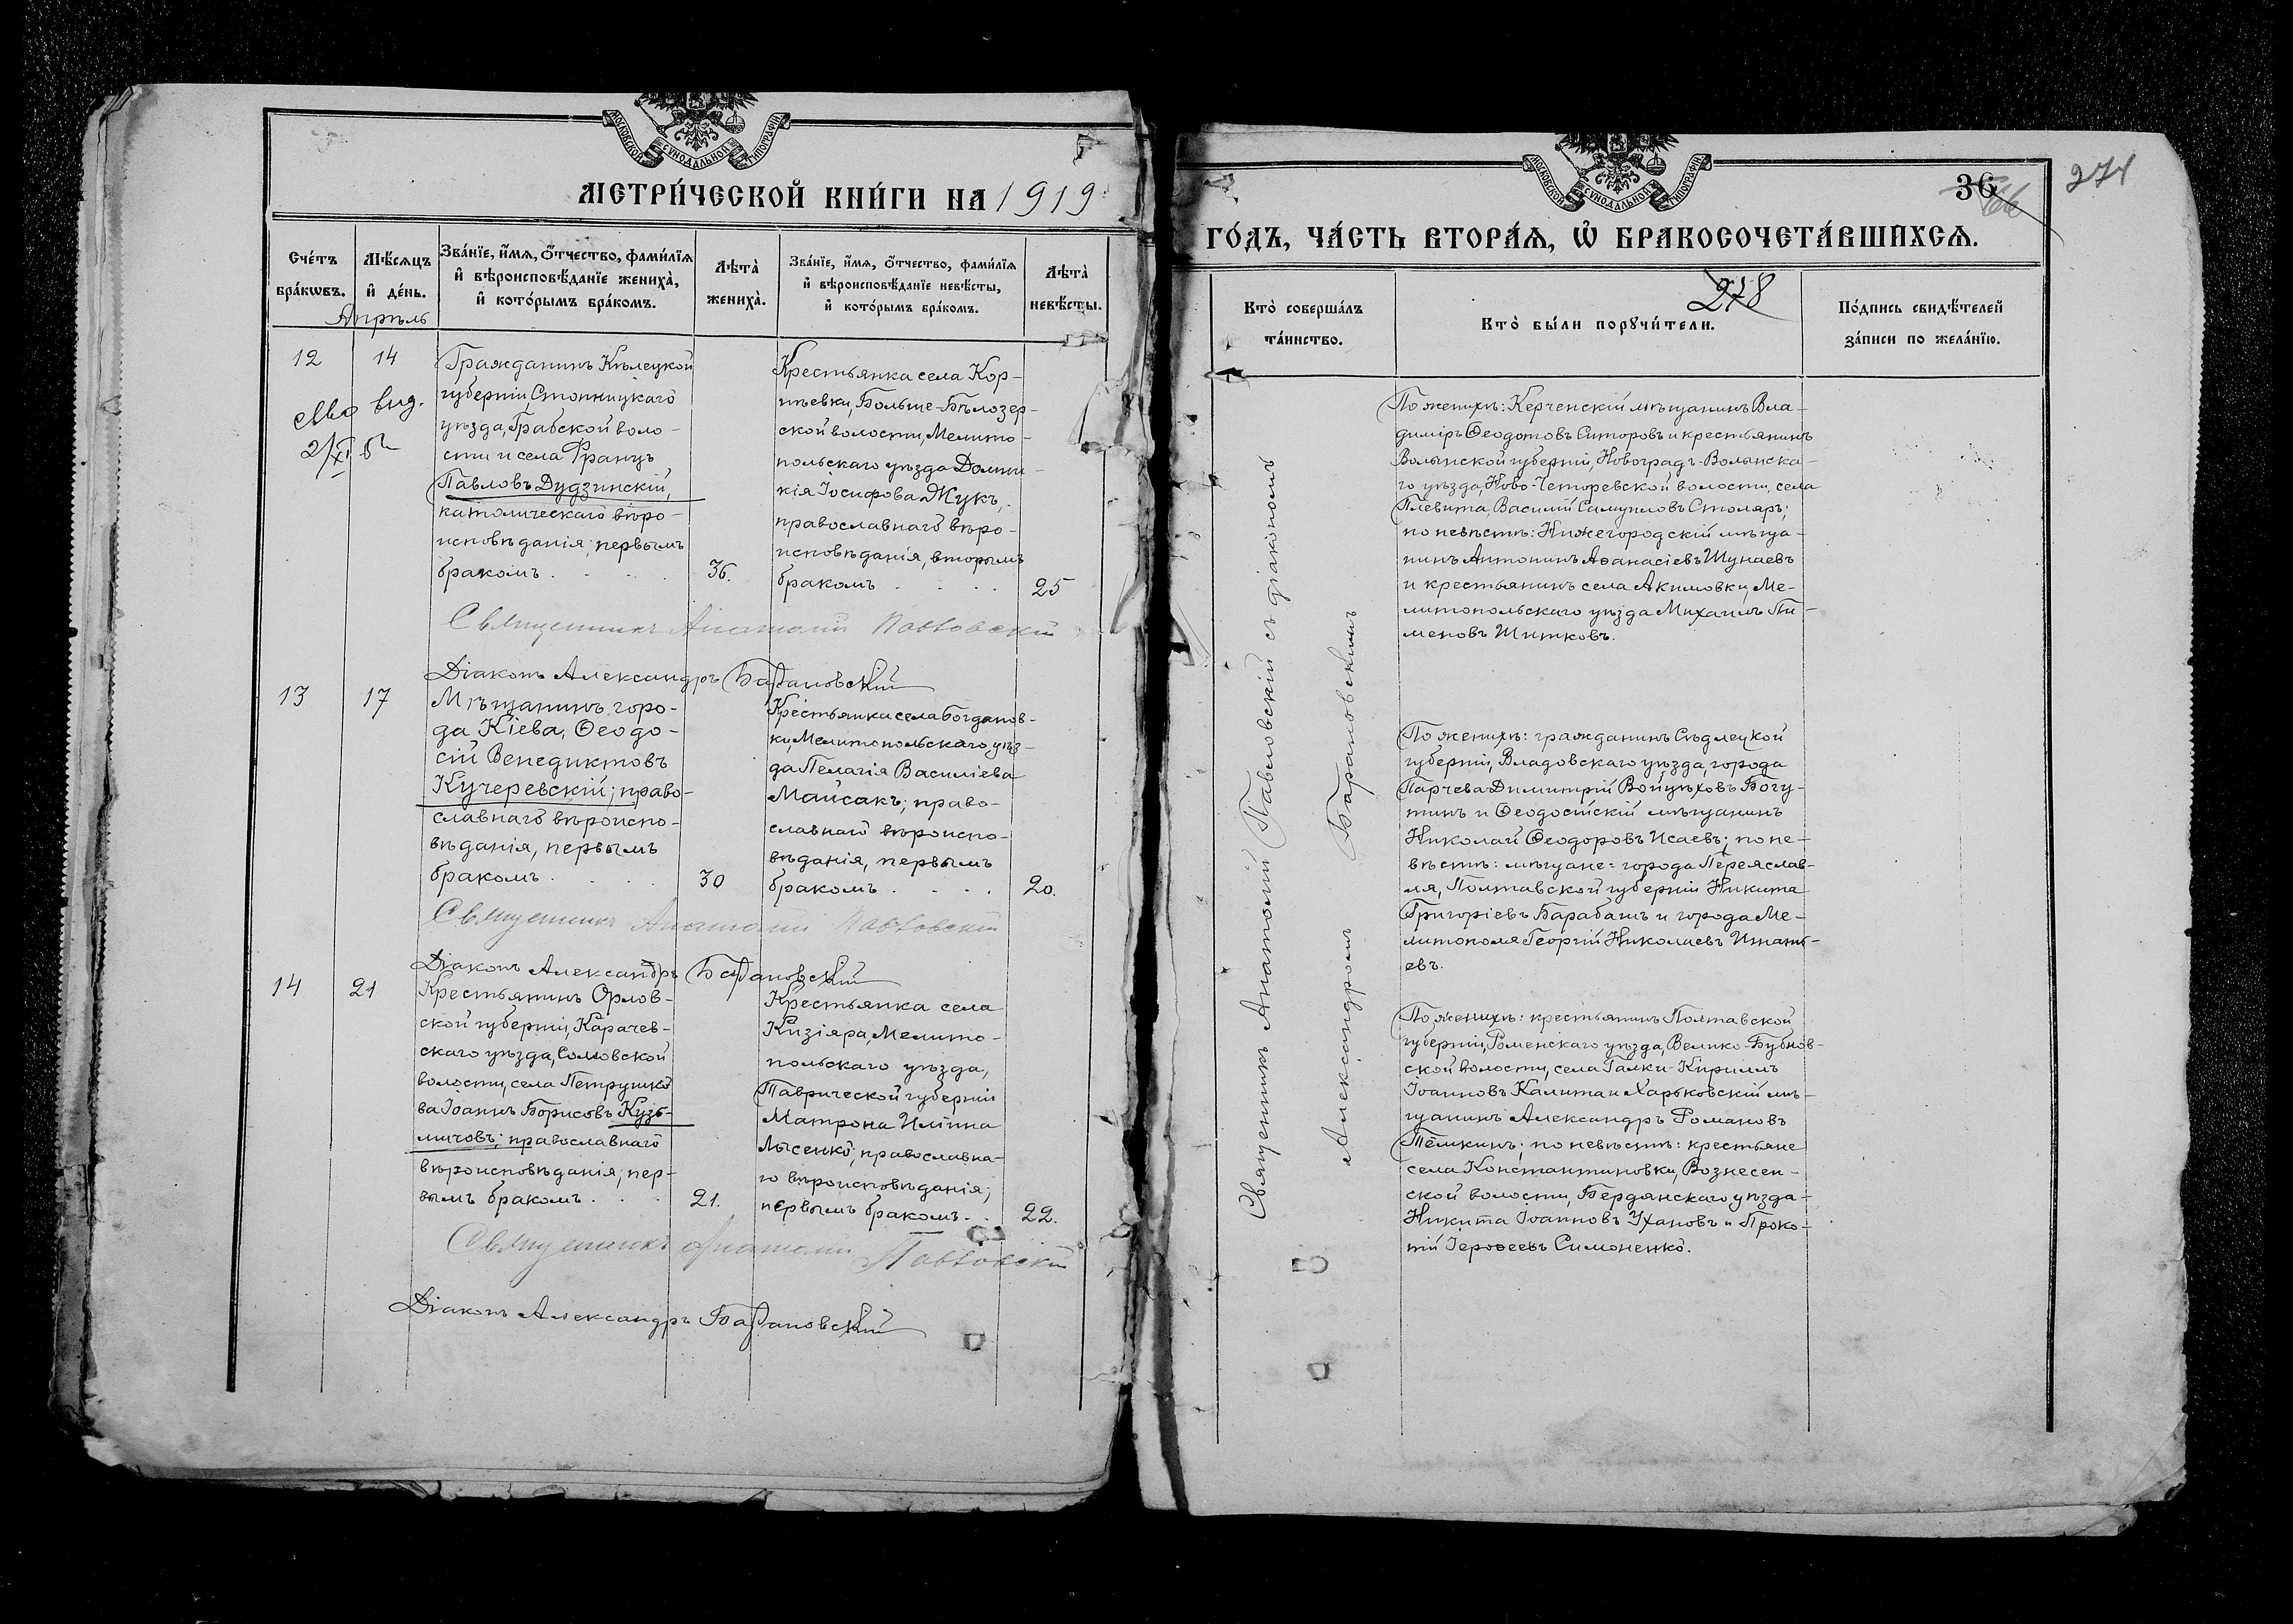 МОСКОВСКОЙ СѴНОДАЛЬНОЙ ТИПОГРАФІИ
МЕТРИ́ЧЕСКОЙ КНИ́ГИ НА 1919
Сче́тъ бра́кѡвъ.
Мѣ́сѧцъ и҆ де́нь.
Зва́нїе, и҆́мѧ, ѻ҆́тчество, фами́лїѧ
и҆ вѣроисповѣ́данїе жениха̀,
и҆ кото́рымъ бра́комъ.
Лѣта̀
жениха̀.
Зва́нїе, и҆́мѧ, ѻ҆́тчество, фами́лїѧ
и҆ вѣроисповѣ́данїе невѣ́сты,
и҆ кото́рымъ бра́комъ.
Лѣта̀
невѣ́сты.
Апрѣль
12
14
выд.
Гражданинъ Кѣлецкой
губерніи, Стопницкаго
уѣзда, Грабской воло-
сти и села Францъ
Павловъ Дудзинскій,
католическаго вѣро-
исповѣданія; первымъ
бракомъ . . . .
36.
Крестьянка села Кор-
нѣевки, Больше-Бѣлозер-
ской волости, Мелито-
польскаго уѣзда Домни-
кія Іосифова Жукъ,
православнаго вѣро-
исповѣданія, вторымъ
бракомъ . . . .
25
Священникъ Анатолій Павловскій
Діаконъ Александръ Барановскій
13
17
Мѣщанинъ горо-
да Кіева, Ѳеодо-
сій Венедиктовъ
Кучеревскій; право-
славнаго вѣроиспо-
вѣданія, первымъ
бракомъ . . . .
30
Крестьянка села Богданов-
ки, Мелитопольскаго уѣз-
да Пелагія Василіева
Майсакъ; право-
славнаго вѣроиспо-
вѣданія, первымъ
бракомъ . . . .
20.
Священникъ Анатолій Павловскій
Діаконъ Александръ Барановскій
14
21
Крестьянинъ Орлов-
ской губерніи, Карачев-
скаго уѣзда, Сомовской
волости, села Петрушко
ва Іоаннъ Борисовъ Кузь-
мичовъ; православнаго
вѣроисповѣданія; пер-
вымъ бракомъ . . .
21.
Крестьянка села
Кизіяра, Мелито-
польскаго уѣзда,
Таврической губерніи
Матрона Иліина
Лысенко; православна-
го вѣроисповѣданія;
первымъ бракомъ. .
22.
Священникъ Анатолій Павловскій
Діаконъ Александръ Барановскій
МОСКОВСКОЙ СѴНОДАЛЬНОЙ ТИПОГРАФІИ
36
274
ГО́ДЪ, ЧА́СТЬ ВТОРА́Ѧ, Ѡ҆ БРАКОСОЧЕТА́ВШИХСѦ.
278
Кто̀ соверша́лъ
та́инство.
Кто̀ бы́ли порꙋчи́тели.
По́дпись свидѣ́телей
за́писи по жела́нїю.
Священникъ Анатолій Павловскій съ діакономъ
Александромъ Барановскимъ
По женихѣ: Керченскій мѣщанинъ Вла-
диміръ Ѳеодотовъ Ситоровъ и крестьянинъ
Волынской губерніи, Новоградъ-Волынска-
го уѣзда, Ново-Четоревской волости, села
Плевита, Василій Самуиловъ Столяръ;
по невѣстѣ: Нижегородскій мѣща-
нинъ Антонинъ Аѳанасіевъ Шунаевъ
и крестьянинъ села Акимовки, Ме-
литопольскаго уѣзда Михаилъ Пи-
меновъ Шитковъ.
По женихѣ: гражданинъ Сѣдлецкой
губерніи, Владовскаго уѣзда, города
Парчева Димитрій Войцѣховъ Богу-
тинъ и Ѳеодосійскій мѣщанинъ
Николай Ѳеодоровъ Исаевъ; по не-
вѣстѣ: мѣщане: города Переяслав-
ля, Полтавской губерніи Никита
Григоріевъ Барабашъ и города Ме-
литополя Георгій Николаевъ Игнать-
евъ.
По женихѣ: крестьянинъ Полтавской
губерніи, Роменскаго уѣзда, Велико-Бубнов-
ской волости, села Галки-Кириллъ
Іоанновъ Калита и Харьковскій мѣ-
щанинъ Александръ Романовъ
Тёмкинъ; по невѣстѣ: крестьяне
села Константиновки, Вознесен-
ской волости, Бердянскаго уѣзда-
Никита Іоанновъ Ухановъ и Проко-
пій Іероѳеевъ Симоненко.